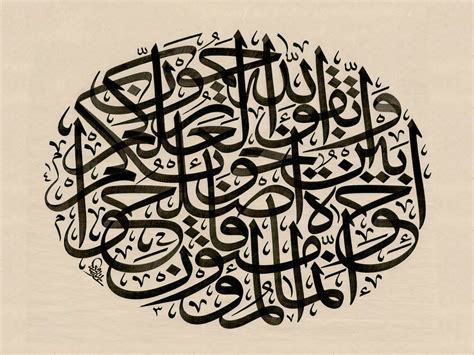 إنما المؤمنون
إخوة فأصلحوا
بين أخويكم
واتقوا الله لعلكم ترحمون